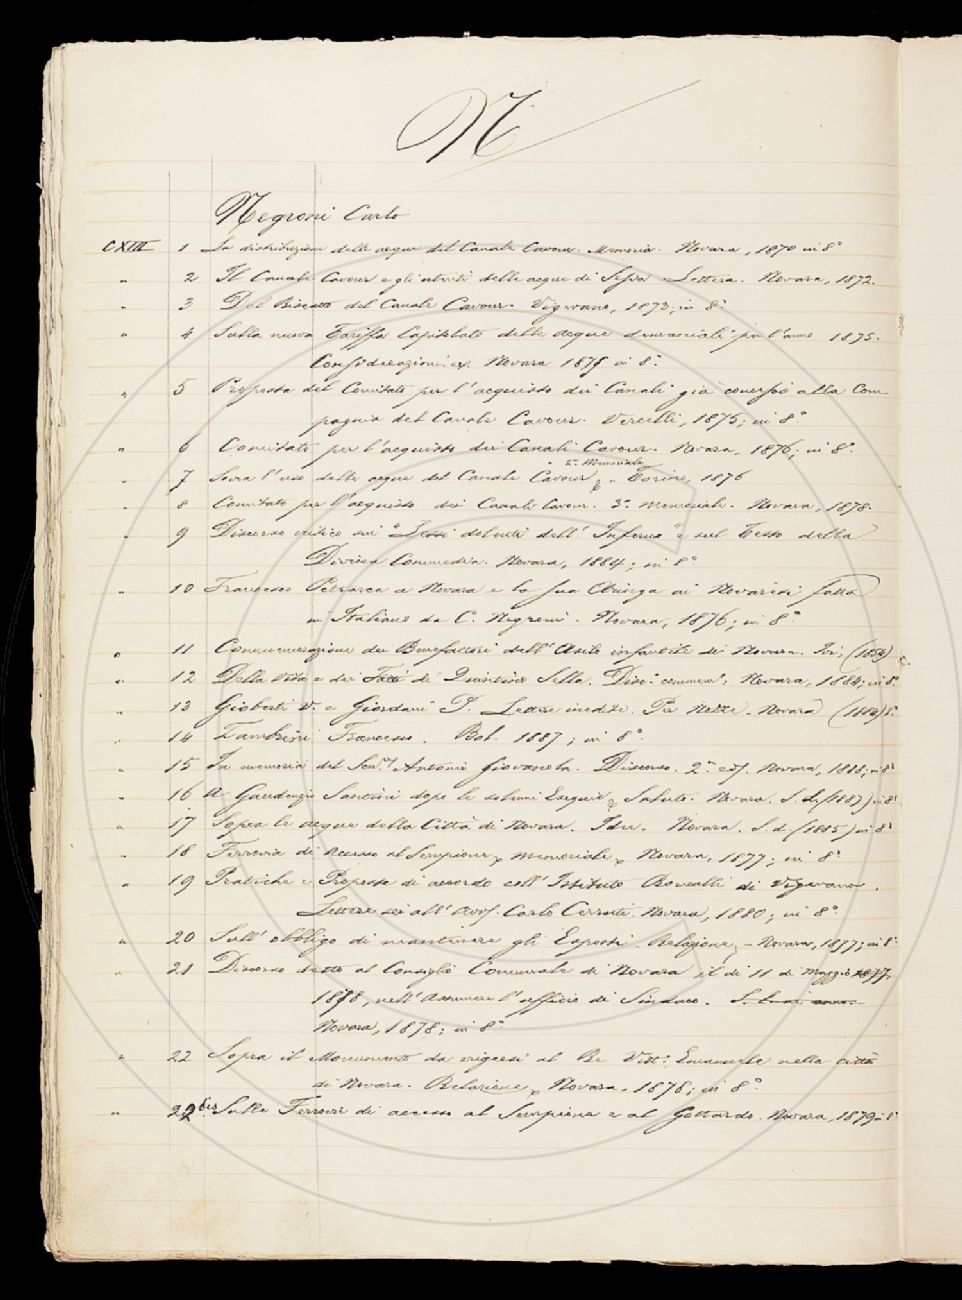 N
Negroni Carlo
CXIII 1 La distribuzione delle acque del Canale Cavour. Memoria. Novara, 1870 in 8°
" 2 Il Canale Cavour e gli utenti delle acque di Sesia Lettera. Novara, 1872.
" 3 Del Riscatto del Canale Cavour. Vigevano, 1873, in 8°
" 4 Sulla nuova Tariffa Capitolato delle acque demaniali per l'anno 1875.
Considerazioni Novara 1875 in 8°.
" 5 Proposta del Comitato per l'acquisto dei Canali già concessi alla Com
pagnia del Canale Cavour. Vercelli, 1875; in 8°
" 6 Comitato per l'acquisto dei Canali Cavour. Novara, 1876; in 8°.
2° Memoriale
" 7 Sovra l'uso delle acque del Canale Cavour Torino, 1876
" 8 Comitato per l'acquisto dei Canali Cavour. 3° Memoriale. Novara, 1878.
" 9 Discorso critico sui "Lessi dolenti dell'Inferno" e sul Testo della
Divina Commedia. Novara, 1884; in 8°
" 10 Francesco Petrarca a Novara e la sua Aringa ai Novaresi fatta
in Italiano da C. Negroni. Novara, 1876; in 8°.
" 11 Commemorazione dei Benefattori dell'Asilo infantile di Novara. Ivi, (1854)
" 12 Della Vita e dei Fatti di Quintino Sella. Disc. commem. Novara, 1884; in 8°.
" 13 Gioberti V. e Giordani P. Lettere inedite. Per Nozze. Novara (1884) 8°.
" 14 Zambrini Francesco. Bol. 1887; in 8°.
" 15 In memoria del Sen. Antonio Giovanola. Discorso. 2ª ed. Novara, 1888; in 8°
" 16 A Gaudenzio Santini dopo le solenni Esequie, Saluto. Novara. S. d. (1887) in 8°
" 17 Sopra le acque della Città di Novara. Idee. Novara. S. d. (1885) in 8°
" 18 Ferrovia di accesso al Sempione, Memoriale, Novara, 1877; in 8°
" 19 Pratiche e Proposte di accordo coll'Istituto Roncalli di Vigevano.
Lettere sei all'Avv. Carlo Cerruti. Novara, 1880; in 8°.
" 20 Sull'obbligo di mantenere gli Esposti. Relazione, - Novara, 1877; in 8°
" 21 Discorso detto al Consiglio Comunale di Novara il dì 11 di Maggio 1877,
1878, nell'Assumere l'ufficio di Sindaco.
Novara, 1878; in 8°
" 22 Sopra il Monumento da erigersi al Re Vitt. Emanuele nella città
di Novara. Relazione, Novara, 1878; in 8°.
" 22 bis Sulle Ferrovie di accesso al Sempione e al Gottardo. Novara, 1879 in 8°